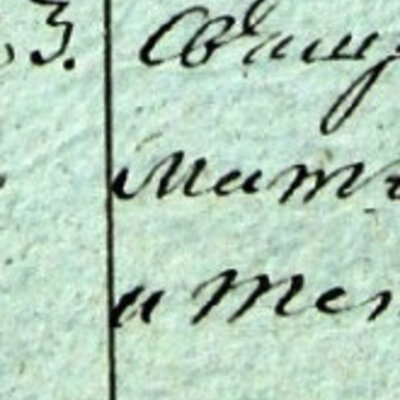 3. Свящ
Мат
и Тен